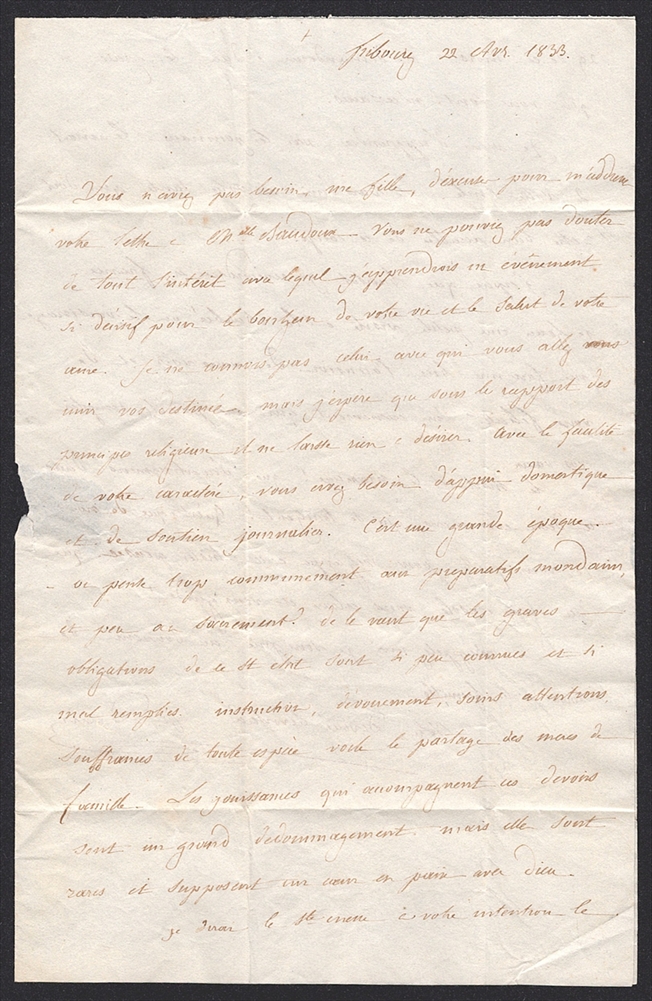 fribourg 22 Avr. 1833.
Vous n'aviez pas besoin ma fille, d'excuse pour m'addresser
votre lettre a Mlle Baudoux. Vous ne pouviez pas douter
de tout l'intérêt avec lequel j'apprendrois un evénement
si decisif pour le bonheur de votre vie et le salut de votre
ame. Je ne connois pas celui avec qui vous allez
unir vos destinées, mais j'espère que sous le rapport des
principes religieux il ne laisse rien a désirer. avec la
de votre caractère, vous avez besoin d'appui domestique
et de soutien journalier. C'est une grande époque.
on pense trop communement aux preparatifs mondains,
et peu au Sacrement. de la vient que les graves
obligations de ce st état sont si peu connues et si
mal remplies. instruction, dévouement, soins attentions,
souffrances de toute espèce voila le partage des meres de
famille. Les jouissances qui accompagnent ces devoirs
sont un grand dedommagement. mais elle sont
rares et supposent un cœur en paix avec dieu.
je dirai la Ste messe à votre intention le